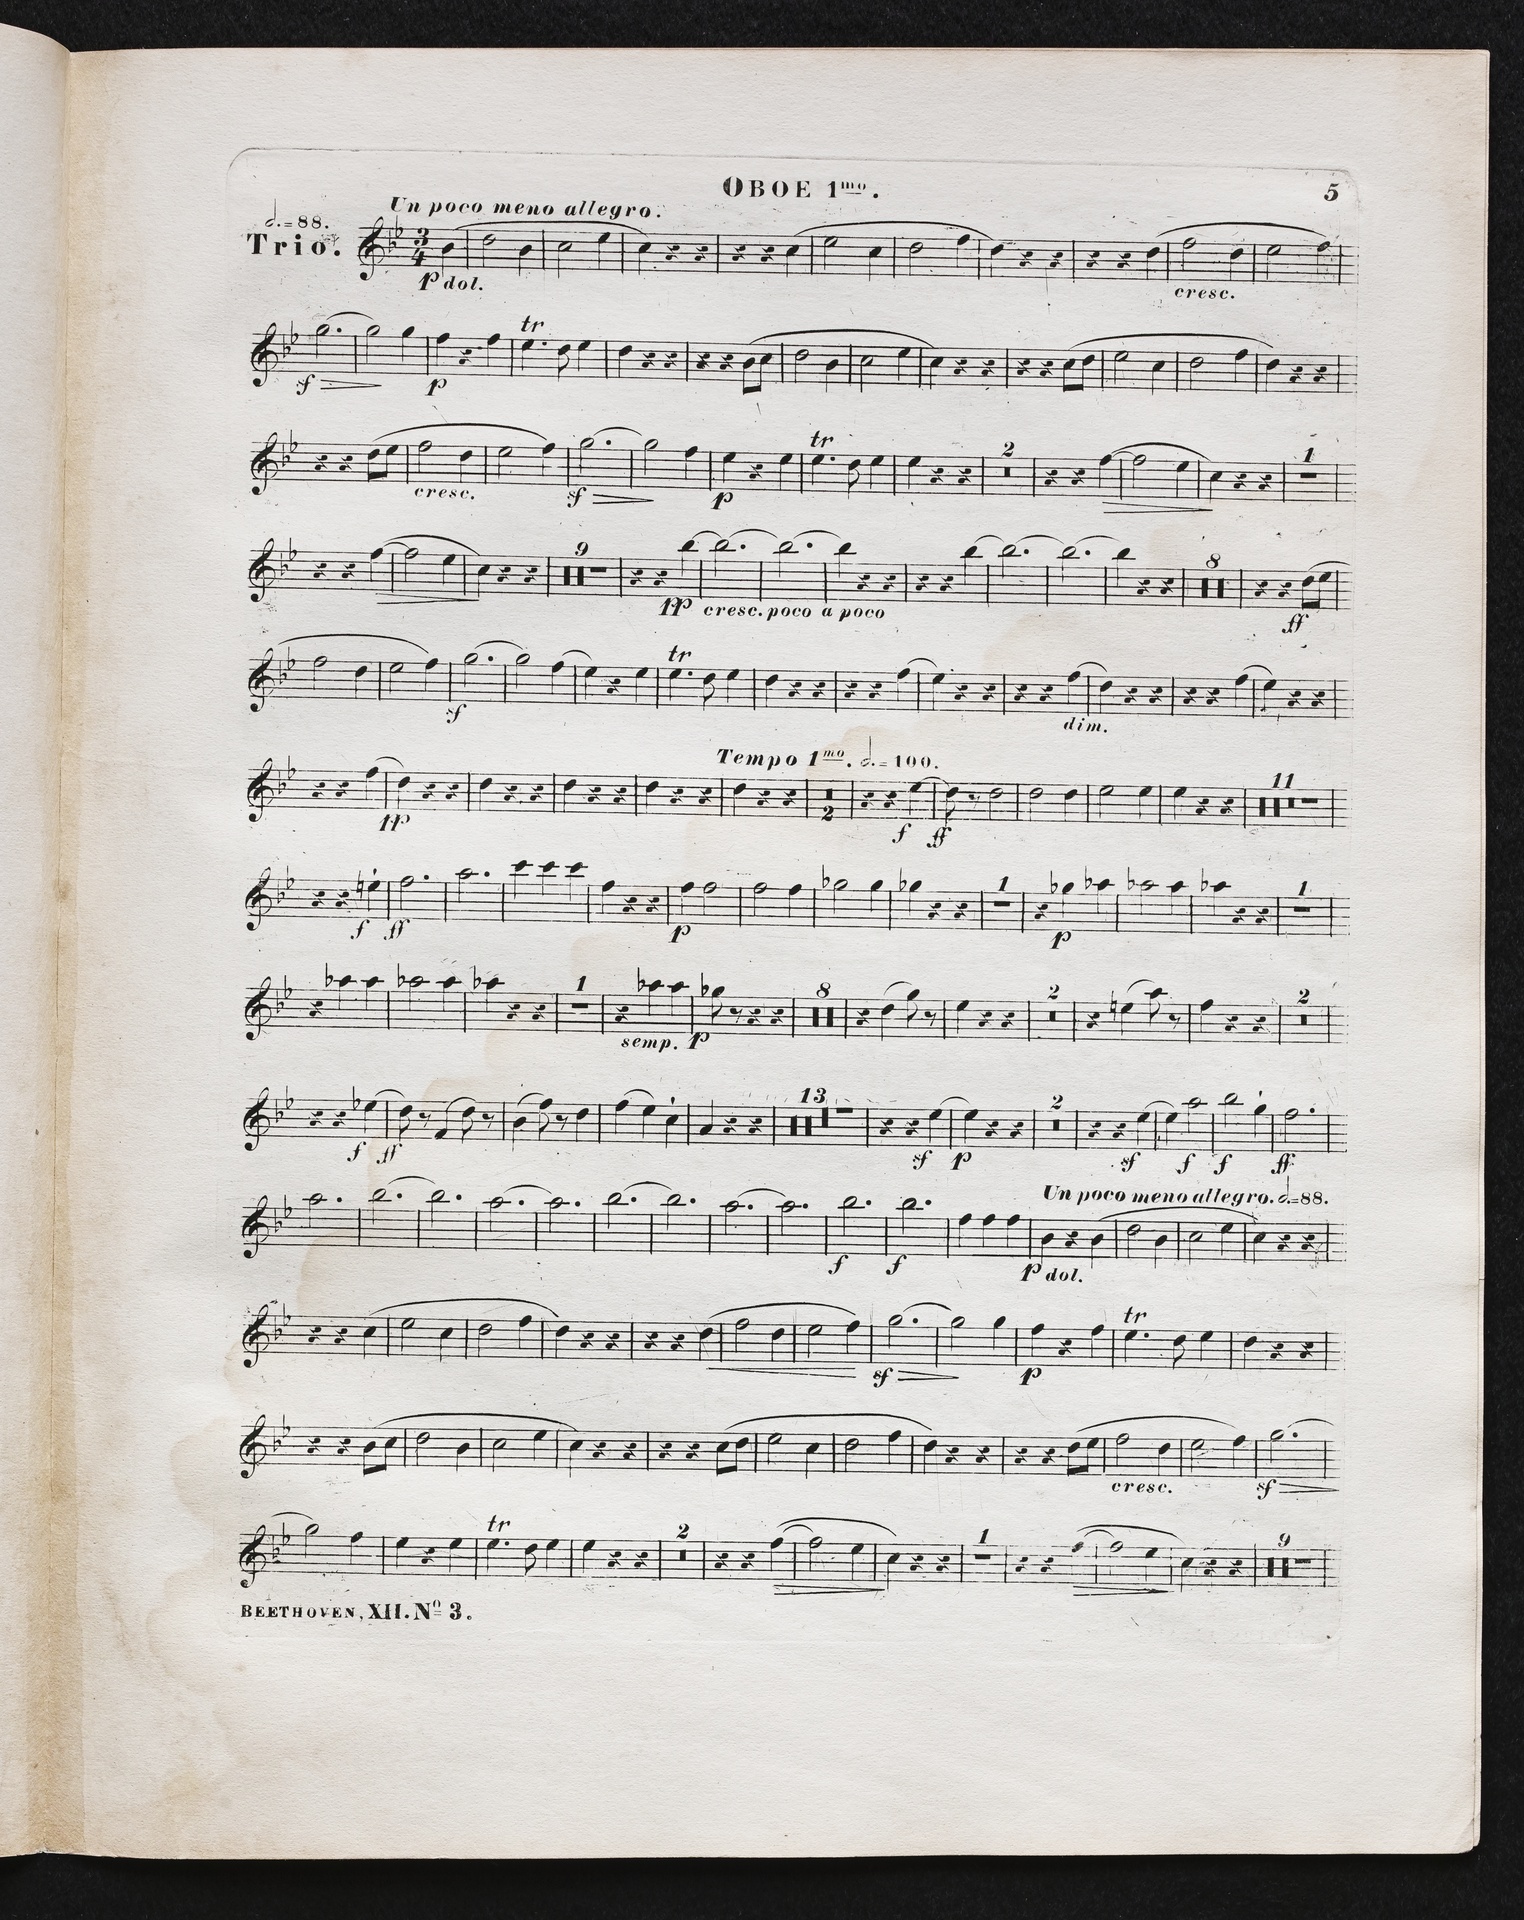 OBOE 1mo.
5
Un poco meno allegro.
𝅗𝅥. = 88.
Trio.
3
4
p dol.
cresc.
tr
sf
p
tr
2
1
cresc.
sf
p
9
8
pp cresc. poco a poco
ff
tr
sf
dim.
Tempo 1mo. 𝅗𝅥. = 100.
11
pp
2
f
ff
1
1
f
ff
p
p
1
8
2
2
semp. p
13
2
f
ff
sf
p
sf
f
f
ff
Un poco meno allegro. 𝅗𝅥. = 88.
f
f
p dol.
tr
sf
p
cresc.
sf
tr
2
1
9
BEETHOVEN, XII. No 3.